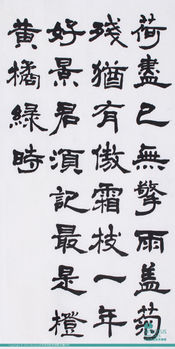 荷盡已無擎雨盖菊
殘猶有傲霜枝一年
好景君須記最是橙
黄橘綠時